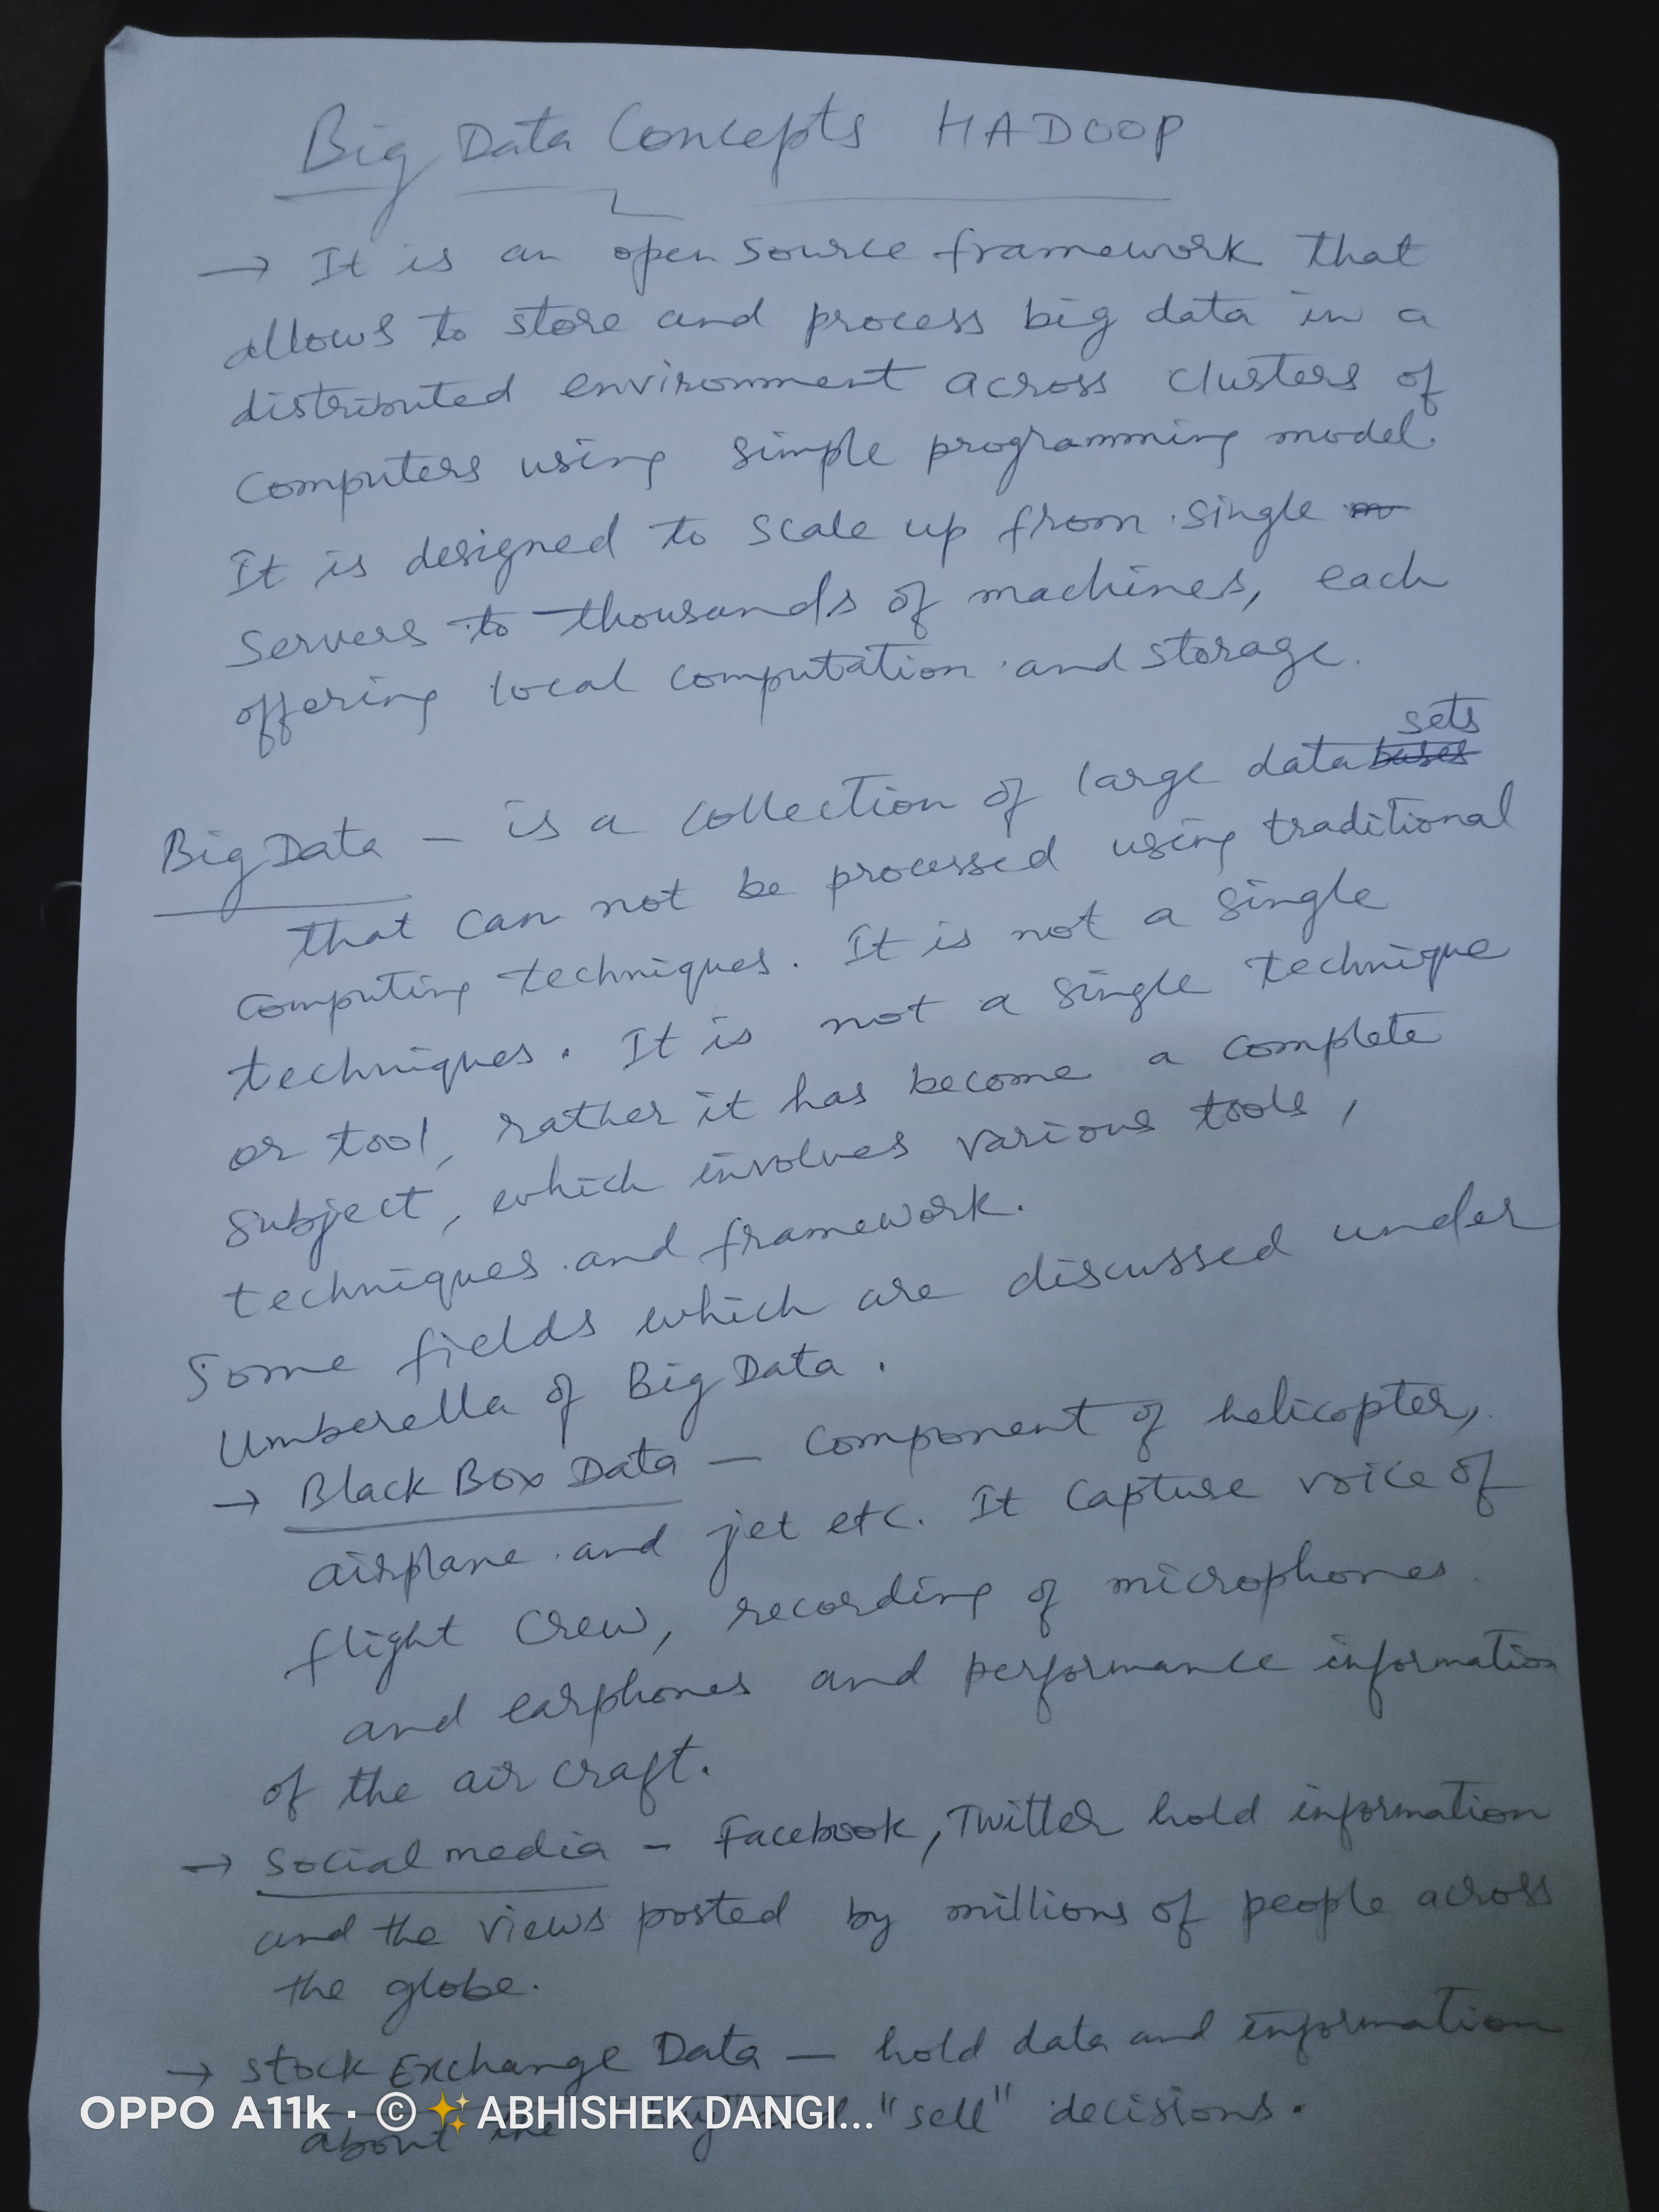 Big Data Concepts HADOOP
→ It is an open source framework that
allows to store and process big data in a
distributed environment across clusters of
Computers using simple programming model.
It is designed to scale up from single
Servers to thousands of machines, each
offering local computation and storage.
sets
Big Data — is a collection of large data bases
that can not be processed using traditional
computing techniques. It is not a single
techniques. It is not a single technique
or tool, rather it has become a complete
subject, which involves various tools,
techniques and framework.
Some fields which are discussed under
Umberella of Big Data.
→ Black Box Data — Component of helicopter,
airplane and jet etc. It Capture voice of
flight Crew, recording of microphones
and earphones and performance information
of the air craft.
→ Social media – Facebook, Twitter hold information
and the views posted by millions of people across
the globe.
→ Stock Exchange Data — hold data and information
about the "buy" and "sell" decisions.
OPPO A11k · ©✨ABHISHEK DANGI...